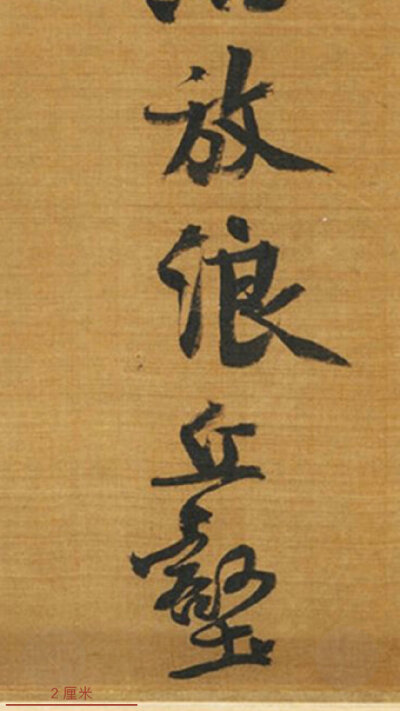 放浪丘壑
2厘米